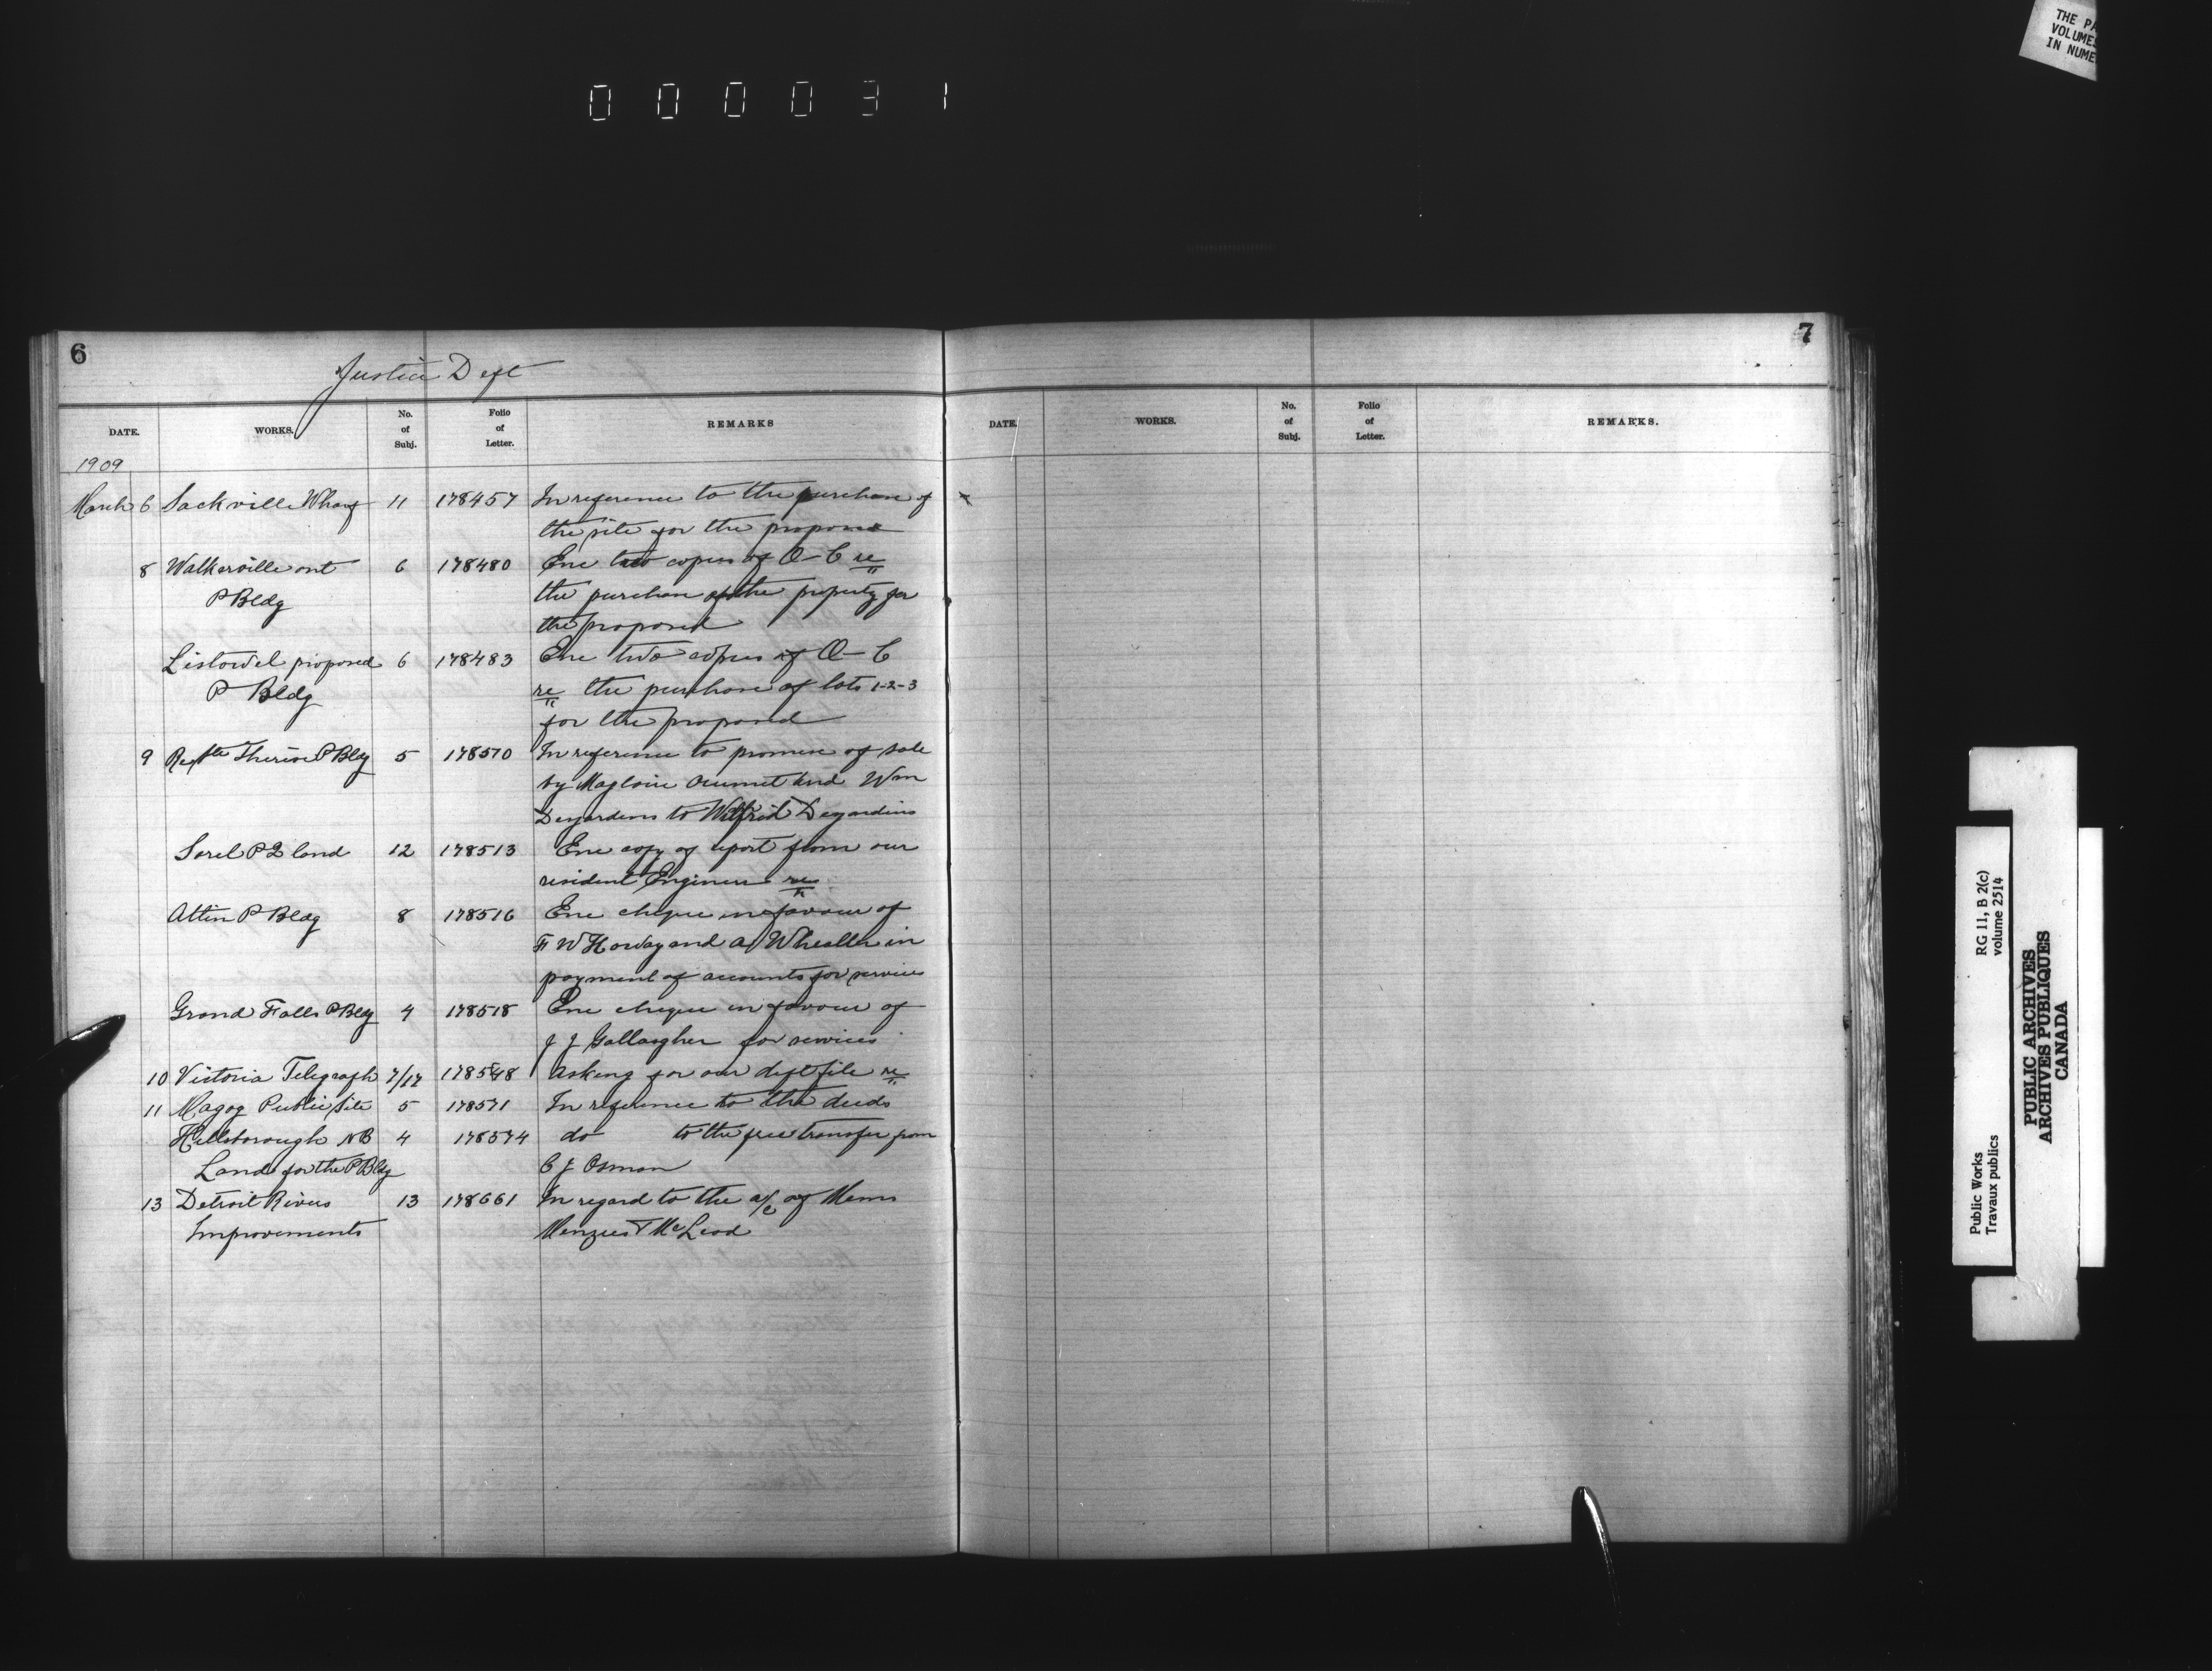 THE PA
VOLUMES
IN NUME
000031
6
Justice Dept
DATE. WORKS. No. of Subj. Folio of Letter. REMARKS
1909
March 6 Sackville Wharf 11 178457 In reference to the purchase of
the site for the proposed
8 Walkerville ont 6 178480 Enc two copies of O-C re
P Bldg the purchase of the property for
the proposed
Listowel proposed 6 178483 Enc two copies of O-C
P Bldg re the purchase of lots 1-2-3
for the proposed
9 Ste Therese P Bldg 5 178510 In reference to promise of sale
by Magloire Ouimet and Wm
Desjardins to Wilfrid Desjardins
Sorel P land 12 178513 Enc copy of report from our
resident Engineer re
Atlin P Bldg 8 178516 Enc cheque in favour of
F W Howay and A Whealler in
payment of accounts for services
Grand Falls P Bldg 4 178518 Enc cheque in favour of
J J Gallagher for services
10 Victoria Telegraph 7/17 178548 Asking for our dept file re
11 Magog Public Site 5 178571 In reference to the deeds
Hillsborough NB 4 178574 do to the free transfer from
Land for the P Bldg C J Osman
13 Detroit River 13 178661 In regard to the a/c of Messrs
Improvements Menzies & McLeod
7
DATE. WORKS. No. of Subj. Folio of Letter. REMARKS.
Public Works RG 11, B 2(c)
Travaux publics volume 2514
PUBLIC ARCHIVES
ARCHIVES PUBLIQUES
CANADA